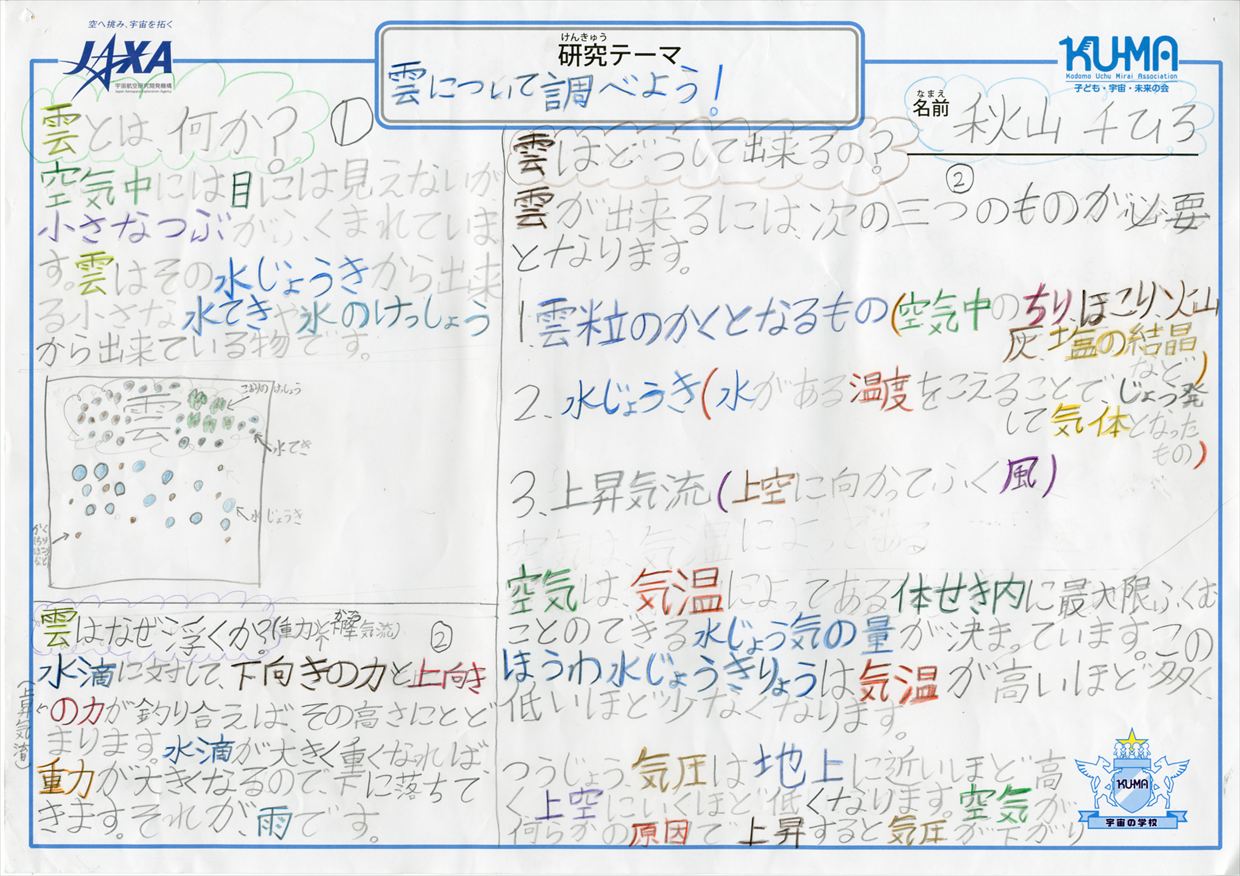 空へ挑み、宇宙を拓く
JAXA
宇宙航空研究開発機構
Japan Aerospace Exploration Agency
けんきゅう
研究テーマ
雲について調べよう!
KU-MA
Kodomo Uchu Mirai Association
子ども・宇宙・未来の会
なまえ
名前
秋山 千ひろ
雲とは、何か?
①
空気中には目には見えないが
小さなつぶがふくまれていま
す。雲はその水じょうきから出来
る小さな水てきや氷のけっしょう
から出来ている物です。
雲
こおりのけっしょう
水てき
水じょうき
かく
ちり
ほこり
など
雲はなぜ浮くか?(重力と下降気流)
②
水滴に対して、下向きの力と上向き
の力が釣り合えば、その高さにとど
まります。水滴が、大きく重くなれば、
重力が大きくなるので、下に落ちて
きます。それが、雨です。
(上昇気流)
雲はどうして出来るの?
②
雲が出来るには、次の三つのものが必要
となります。
1.雲粒のかくとなるもの(空気中のちり、ほこり、火山
灰、塩の結晶
など)
2、水じょうき(水がある温度をこえることで、じょう発
して気体となった
もの)
3、上昇気流(上空に向かってふく風)
空気は、気温によってある
空気は、気温によってある体せき内に最大限ふくむ
ことのできる水じょう気の量が決まっています。この
ほうわ水じょうきりょうは気温が高いほど多く、
低いほど少なくなります。
つうじょう、気圧は地上に近いほど高
く、上空にいくほど低くなります。空気が
何らかの原因で上昇すると気圧が下がり
KU-MA
宇宙の学校